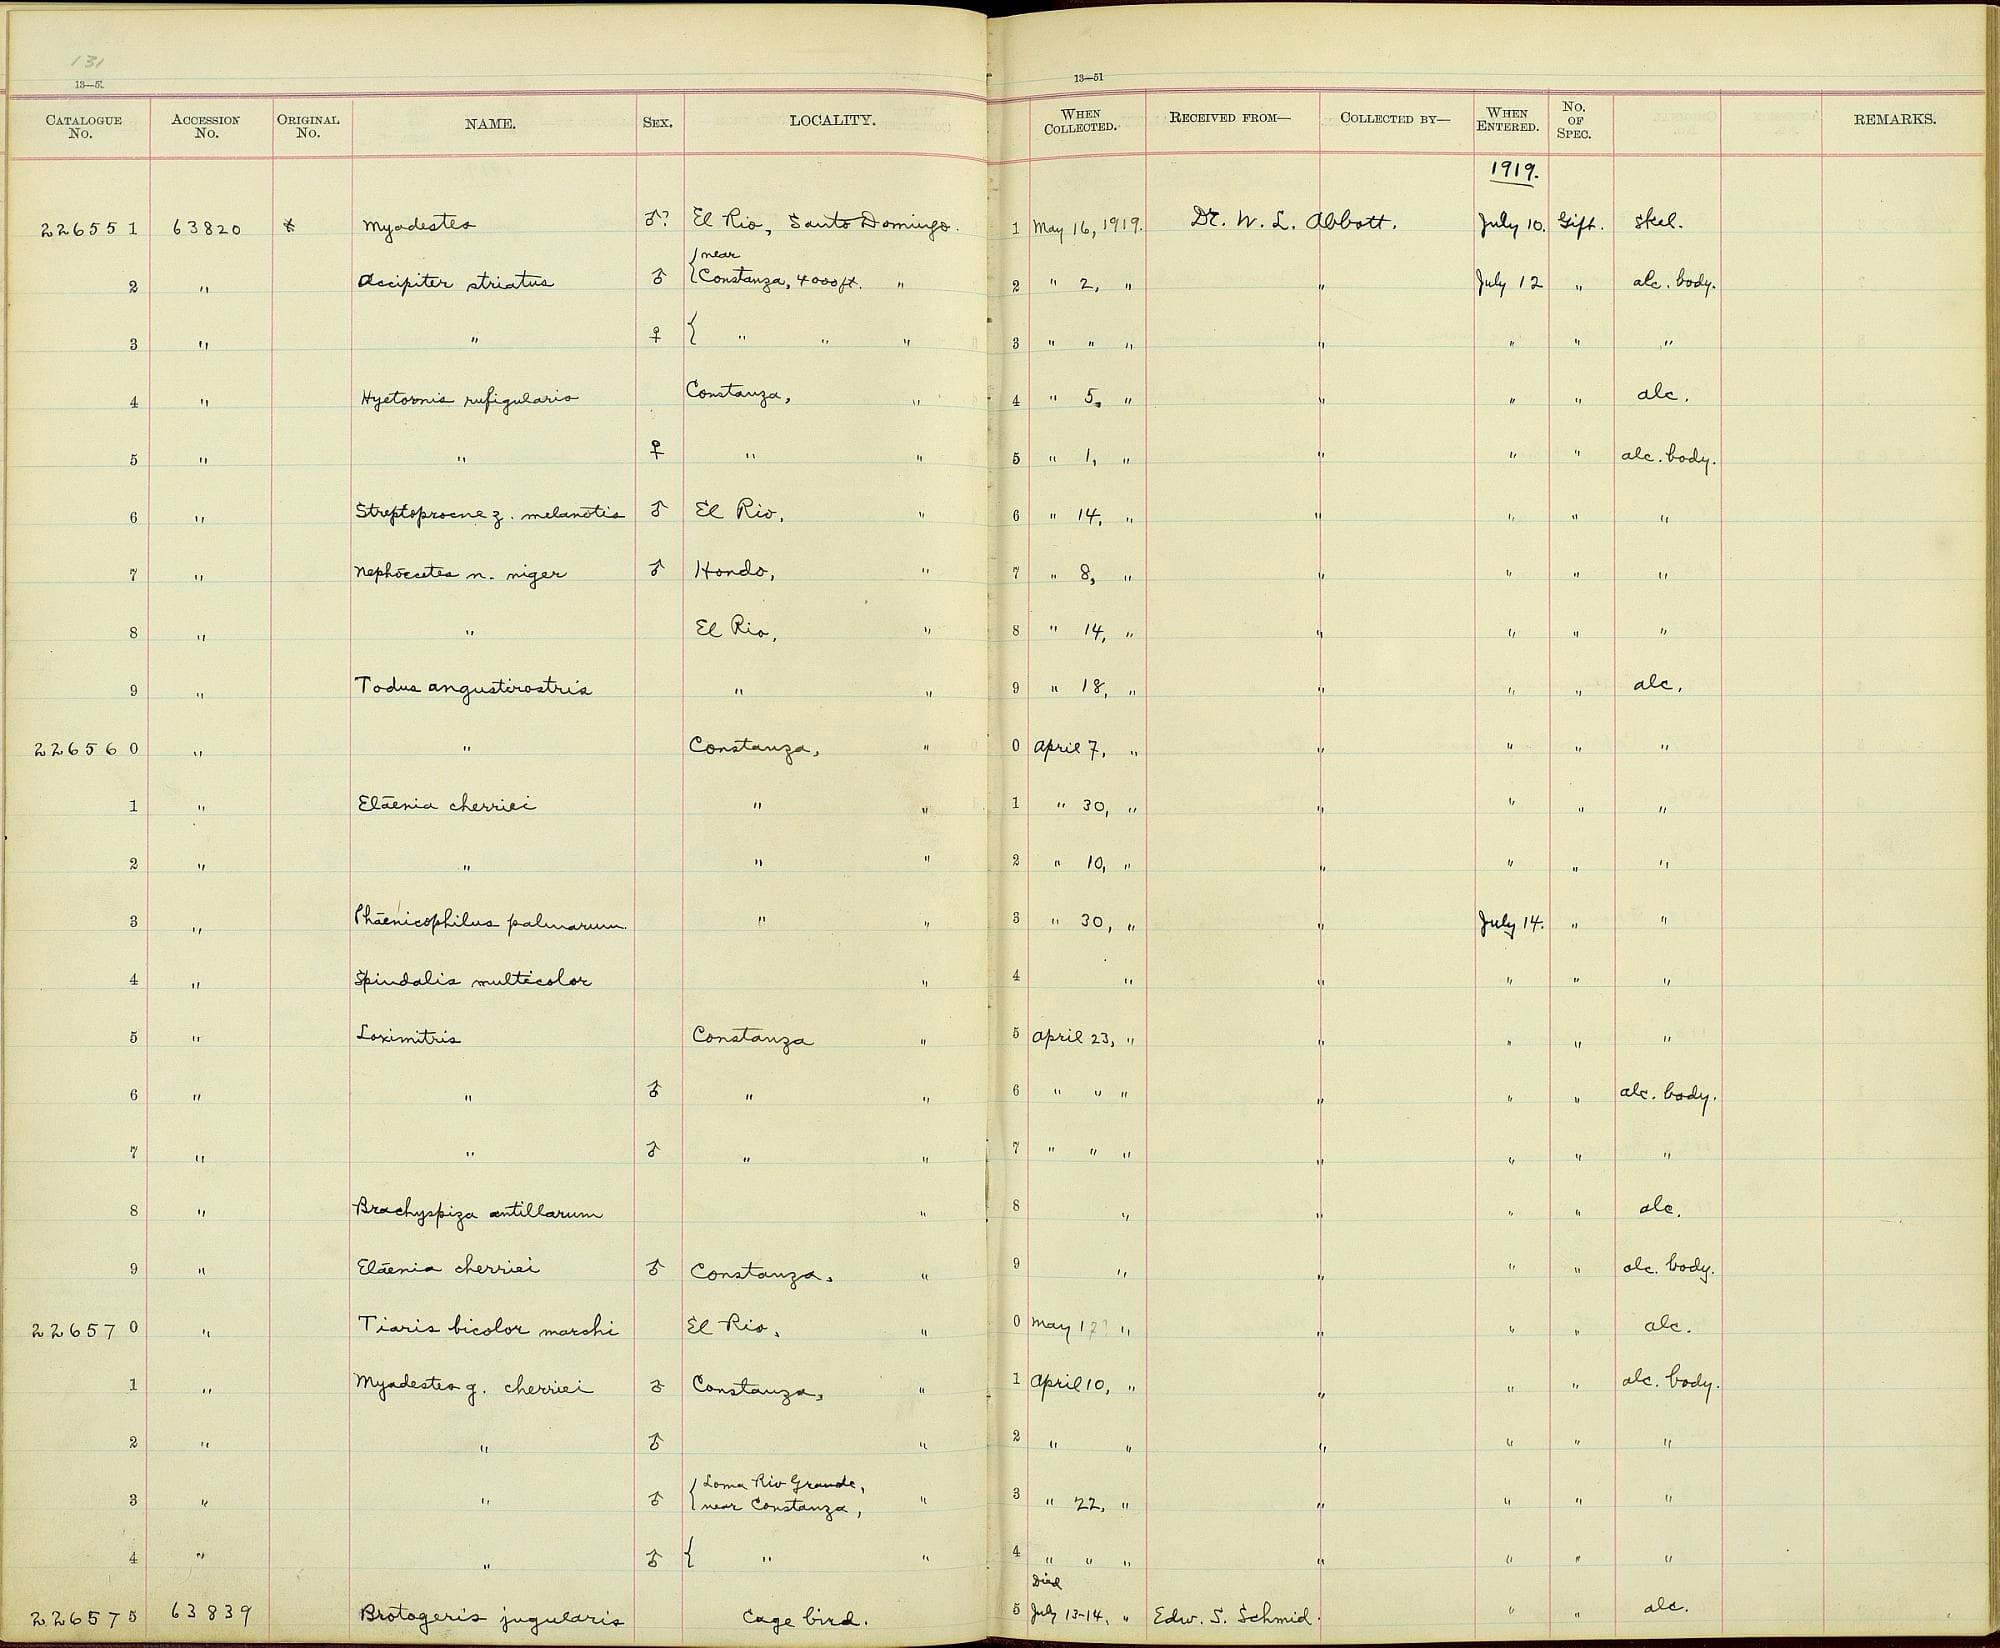 131
13—51
13—51
CATALOGUE No. ACCESSION No. ORIGINAL No. NAME. SEX. LOCALITY. WHEN COLLECTED. RECEIVED FROM— COLLECTED BY— WHEN ENTERED. No. OF SPEC. REMARKS.
1919.
226551 63820 * Myadestes ♂? El Rio, Santo Domingo. 1 May 16, 1919. Dr. W. L. Abbott. July 10. Gift. Skel.
2 " Accipiter striatus ♂ { near Constanza, 4000 ft. " 2 " 2, " " July 12 " alc. body.
3 " " ♀ { " " " 3 " " " " " " "
4 " Hyetornis rufigularis Constanza, " 4 " 5, " " " " alc.
5 " " ♀ " " 5 " 1, " " " " alc. body.
6 " Streptoprocne z. melanotis ♂ El Rio, " 6 " 14, " " " " "
7 " Nephoecetes n. niger ♂ Hondo, " 7 " 8, " " " " "
8 " " El Rio, " 8 " 14, " " " " "
9 " Todus angustirostris " " 9 " 18, " " " " alc.
226560 " " Constanza, " 0 April 7, " " " " "
1 " Elaenia cherriei " " 1 " 30, " " " " "
2 " " " " 2 " 10, " " " " "
3 " Phaenicophilus palmarum. " " 3 " 30, " " July 14. " "
4 " Spindalis multicolor " 4 " " " " "
5 " Loximitris Constanza " 5 April 23, " " " " "
6 " " ♂ " " 6 " " " " " " alc. body.
7 " " ♂ " " 7 " " " " " " "
8 " Brachyspiza antillarum " 8 " " " " alc.
9 " Elaenia cherriei ♂ Constanza, " 9 " " " " alc. body.
226570 " Tiaris bicolor marchi El Rio, " 0 May 17? " " " " alc.
1 " Myadestes g. cherriei ♂ Constanza, " 1 April 10, " " " " alc. body.
2 " " ♂ " 2 " " " " " "
3 " " ♂ { Loma Rio Grande, near Constanza, " 3 " 22, " " " " "
4 " " ♂ { " " 4 " " " " " " "
226575 63839 Brotogeris jugularis Cage bird. 5 Died July 13-14, " Edw. S. Schmid. " " alc.